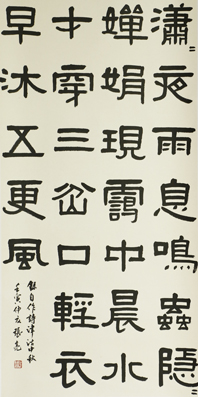 瀟〻夜雨息鳴蟲隱〻
嬋娟現靄中晨水
才穿三岔口輕衣
早沐五更風
錄自作詩津沽秋
壬寅仲